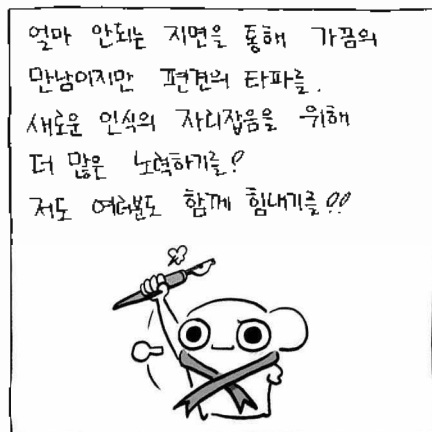 얼마 안되는 지면을 통해 가끔의
만남이지만 편견의 타파를.
새로운 인식의 자리잡음을 위해
더 많은 노력하기를!
저도 여러분도 함께 힘내기를!!